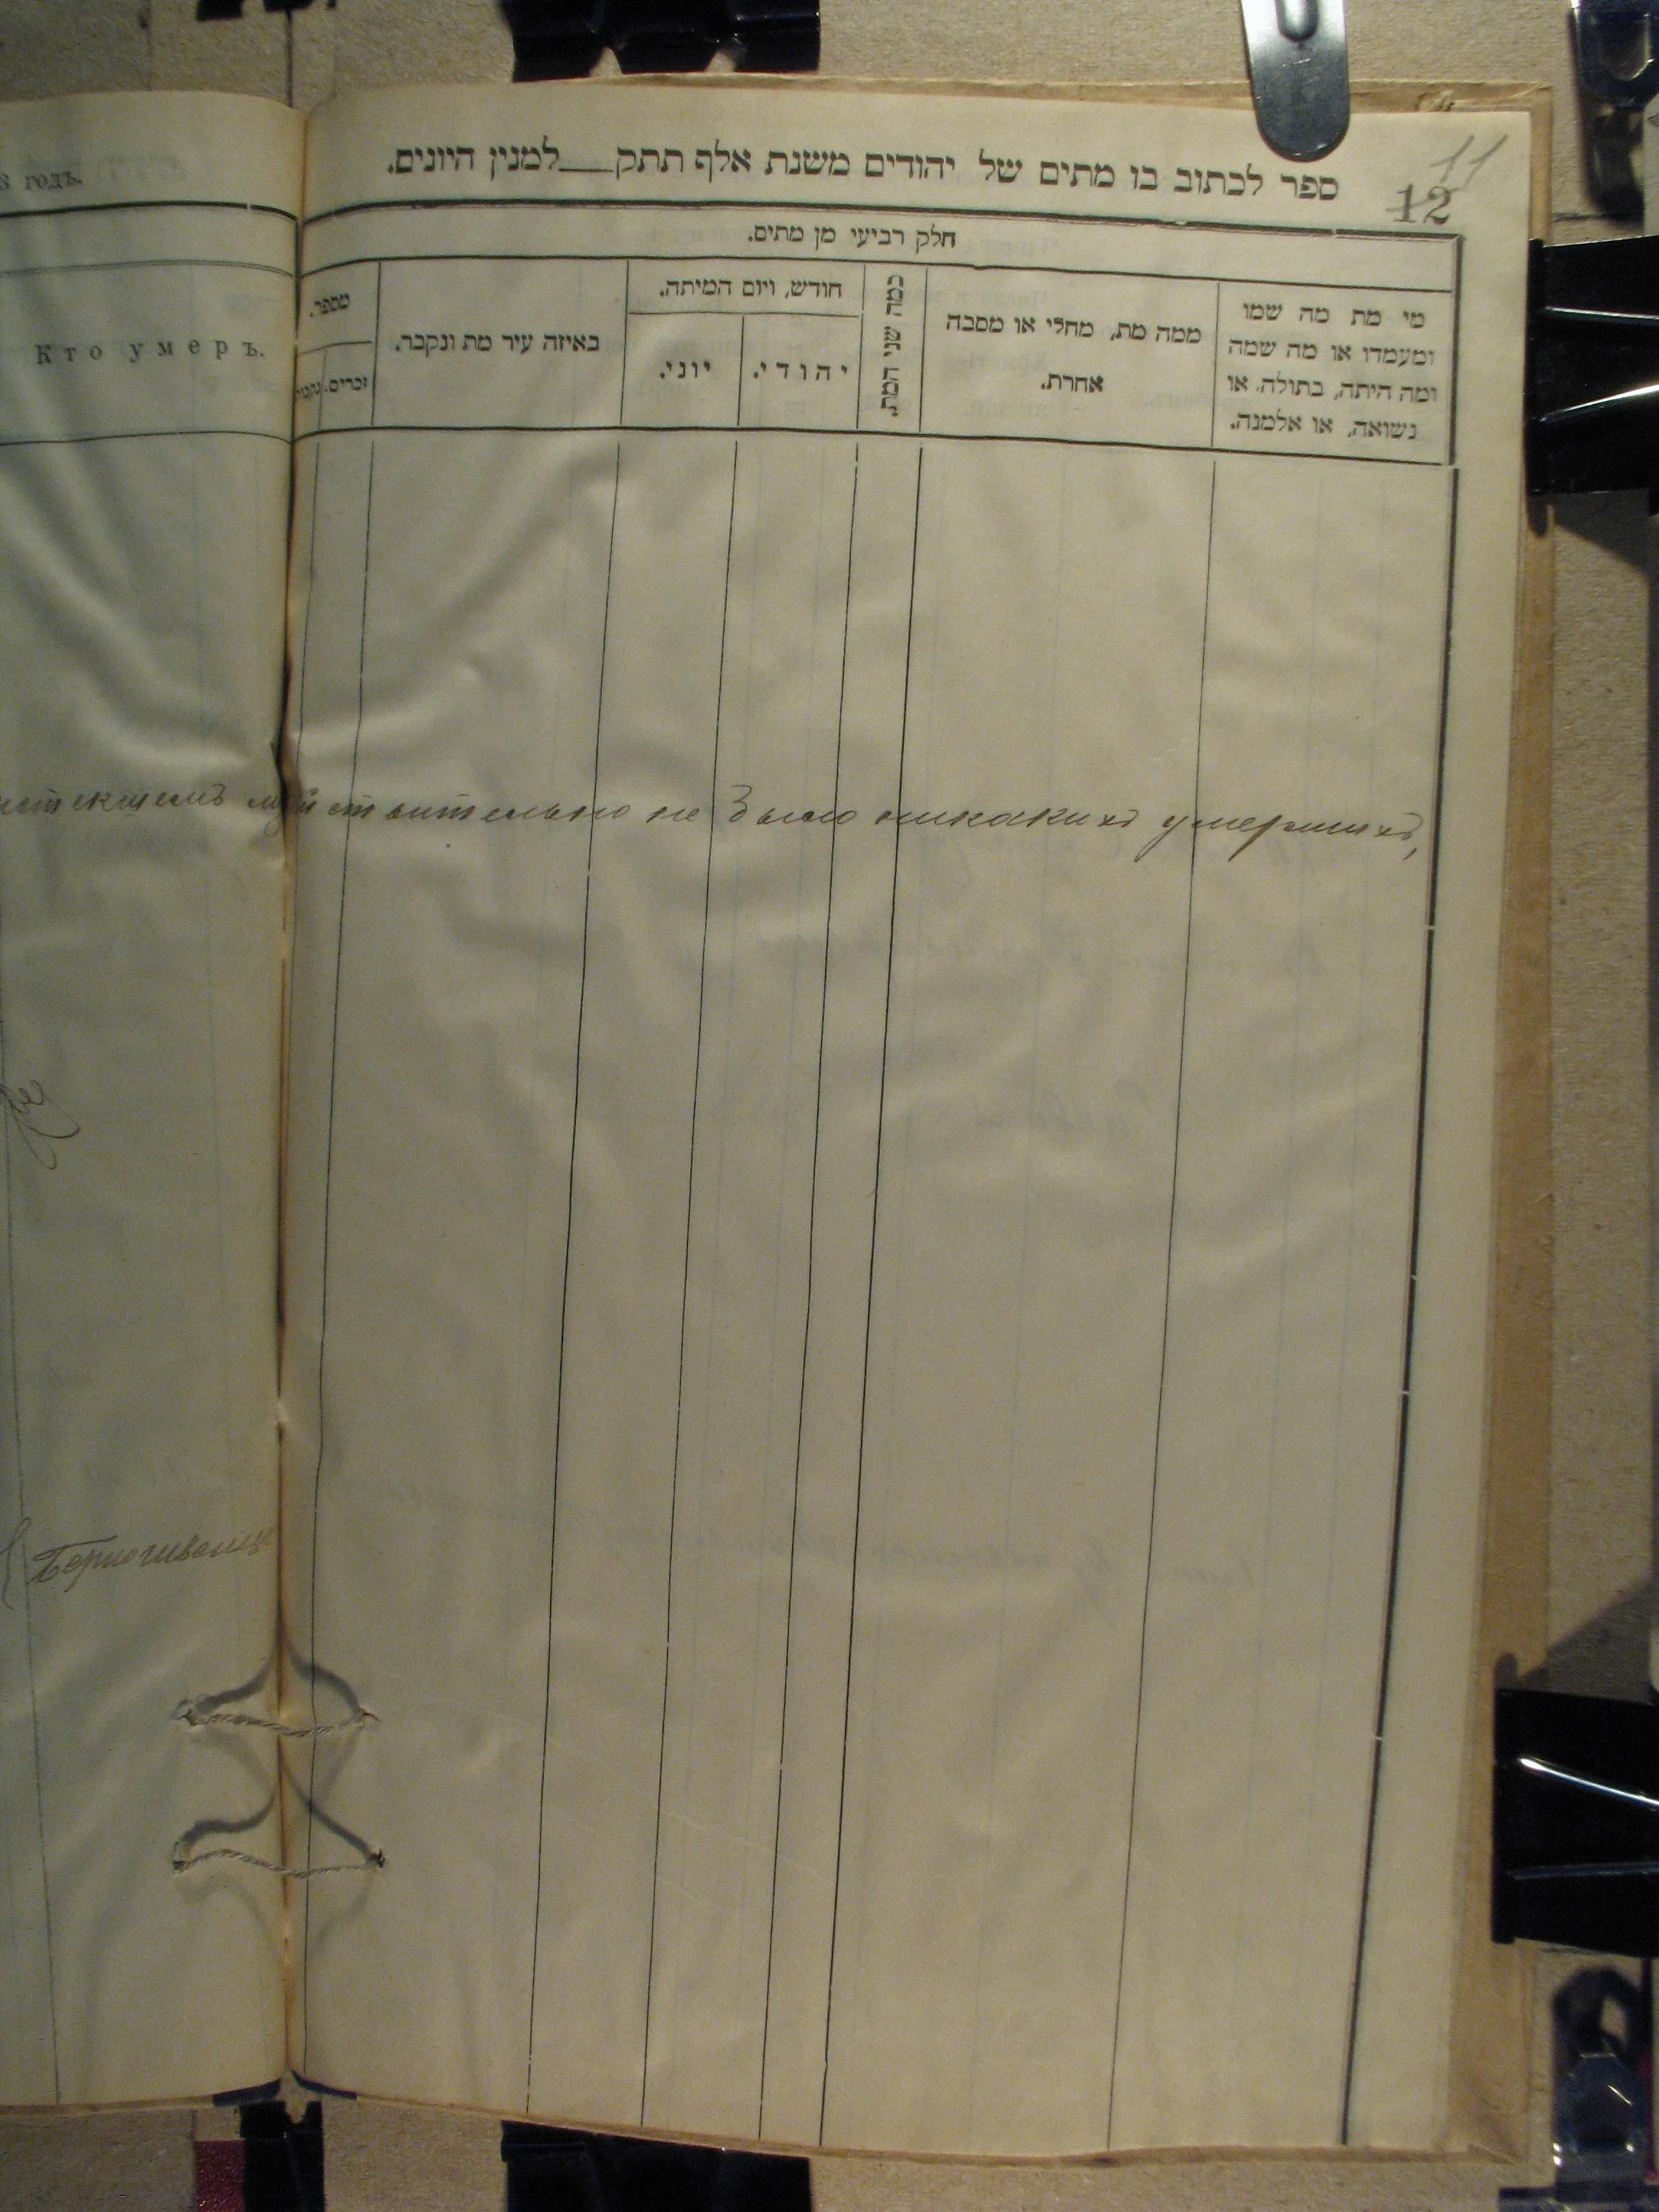 11
12
ספר לכתוב בו מתים של יהודים משנת אלף תתק___למנין היונים.
חלק רביעי מן מתים.
מי מת מה שמו
ומעמדו או מה שמה
ומה היתה, בתולה, או
נשואה, או אלמנה.
ממה מת, מחלי או מסבה
אחרת.
כמה שני המת.
חודש, ויום המיתה.
יהודי.
יוני.
באיזה עיר מת ונקבר.
מספר.
זכרים.
годъ.
Кто умеръ.
истекшемъ
не было никакихъ умершихъ,